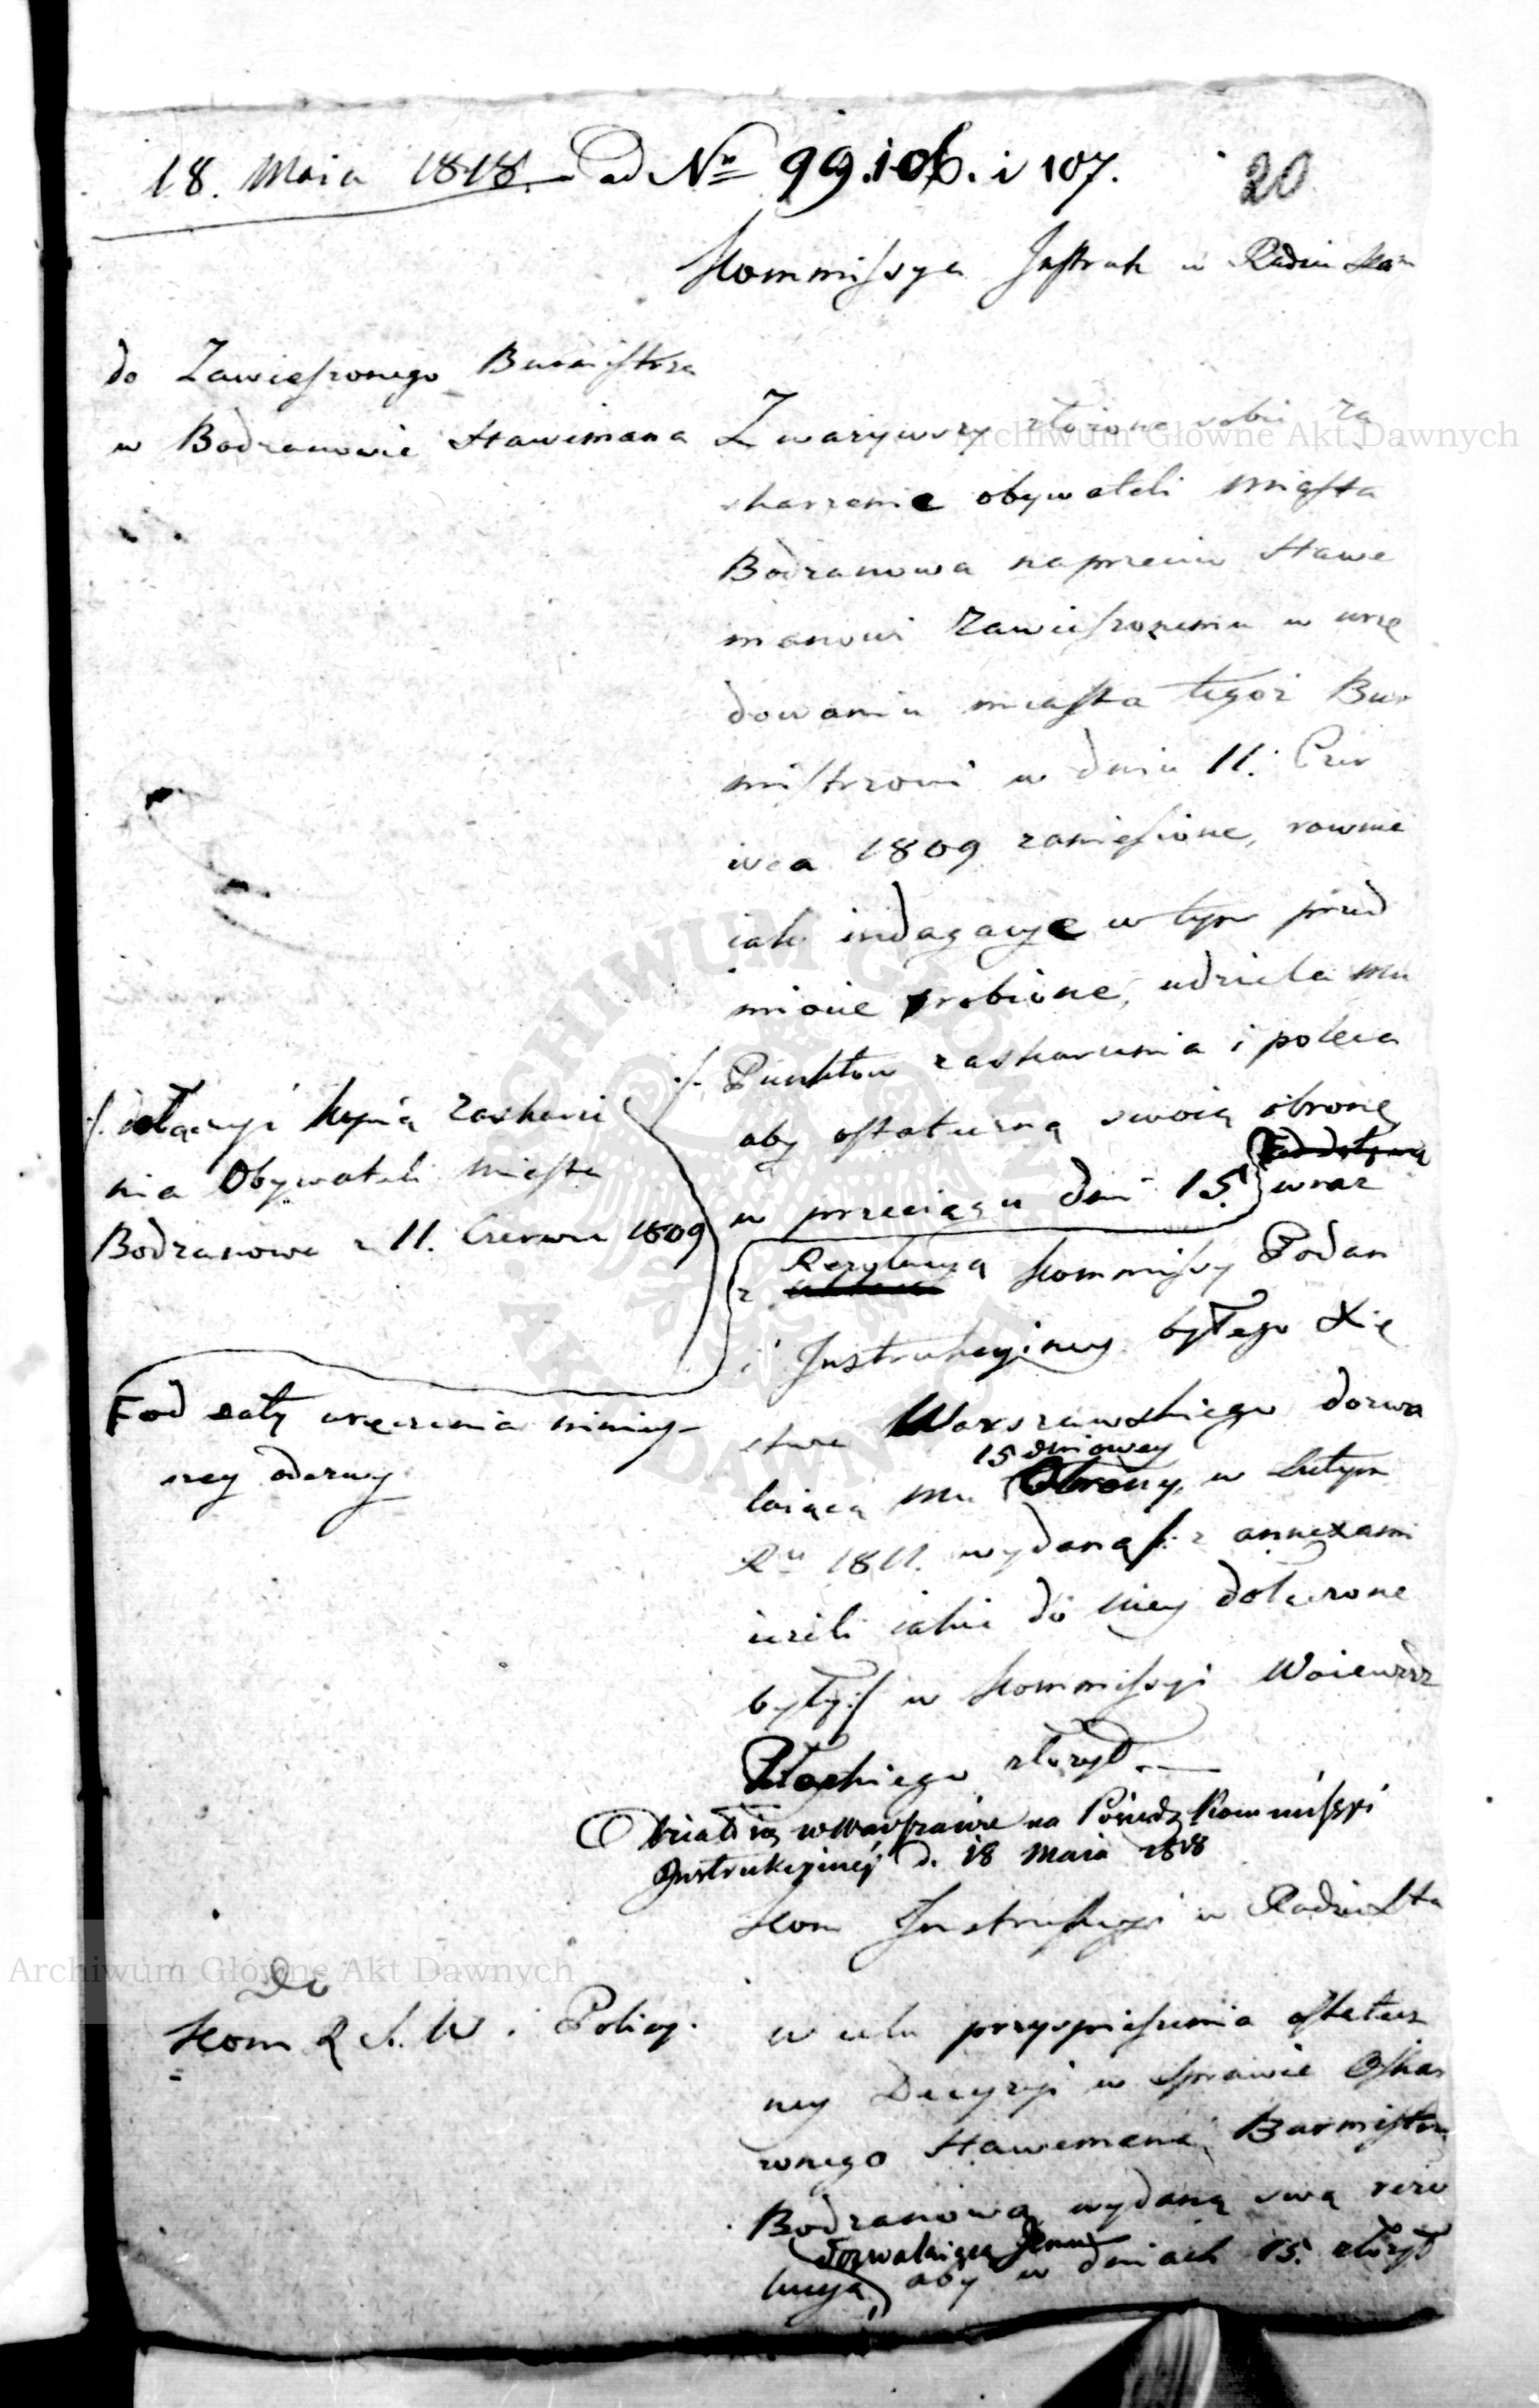 18. Maia 1818. ad Nr 99. 106. i 107. 20
Kommissya Instruk w Radzie Stan
do Zawieszonego Burmistrza
w Bodzanowie Hawemana
Zważywszy złożone sobie za
skarzenie obywateli miasta
Bodzanowa naprzeciw Hawe
manowi zawieszonemu w urzę
dowaniu miasta tegoż Bur
mistrzowi w dniu 11. Czer
wca 1809 zaniesione, rownie
iak indagacye w tym przed
miocie zrobione, udziela mu
./. Punktow zaskarzenia i poleca
aby ostateczną swoią obronę
w przeciągu dni 15. wraz
z Rezolucyą Kommissyi Podan
i Instrukcyiney byłego Xię
stwa Warszawskiego dozwa
laiącą mu 15 dniowey Obrony, w Lutym
Ru 1811. wydaną /: z annexami
ieżeli iakie do niey dołączone
były :/ w Kommissyi Woiewodz
Płockiego złożył.—
./. kopią zaskarze
nia Obywateli Miasta
Bodzanowa z 11. Czerwca 1809
F od daty wręczenia niniey-
szey odezwy
Działo się w Warszawie na Posiedz Kommissyi
Instrukcyiney d. 18 Maia 1818
Kom Instrukcyi w Radzie Sta
Do
Kom R S. W. i Policyi.
w celu przyspieszenia ostatecz
ney Decyzyi w sprawie Oskar
zonego Hawemana Burmistrza
Bodzanowa wydaną swą rezo
lucyą, dozwalaiącą Jemu aby w dniach 15. złożył
Archiwum Główne Akt Dawnych
Archiwum Główne Akt Dawnych
ARCHIWUM GŁÓWNE
AKT DAWNYCH